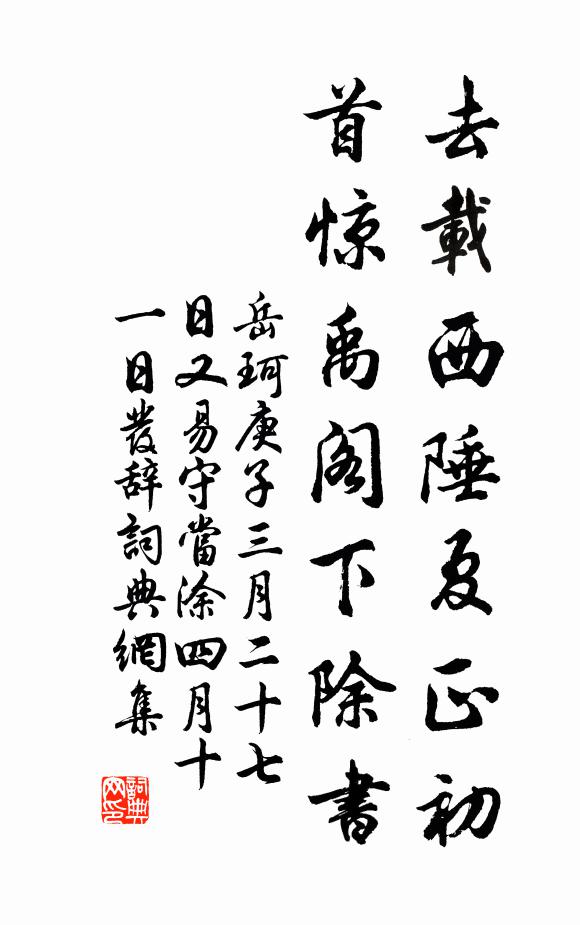 去載西陲夏正初
首惊禹閣下除書
岳珂庚子三月二十七
日又易守當涂四月十
一日發辭詞典網集
詞典
网印